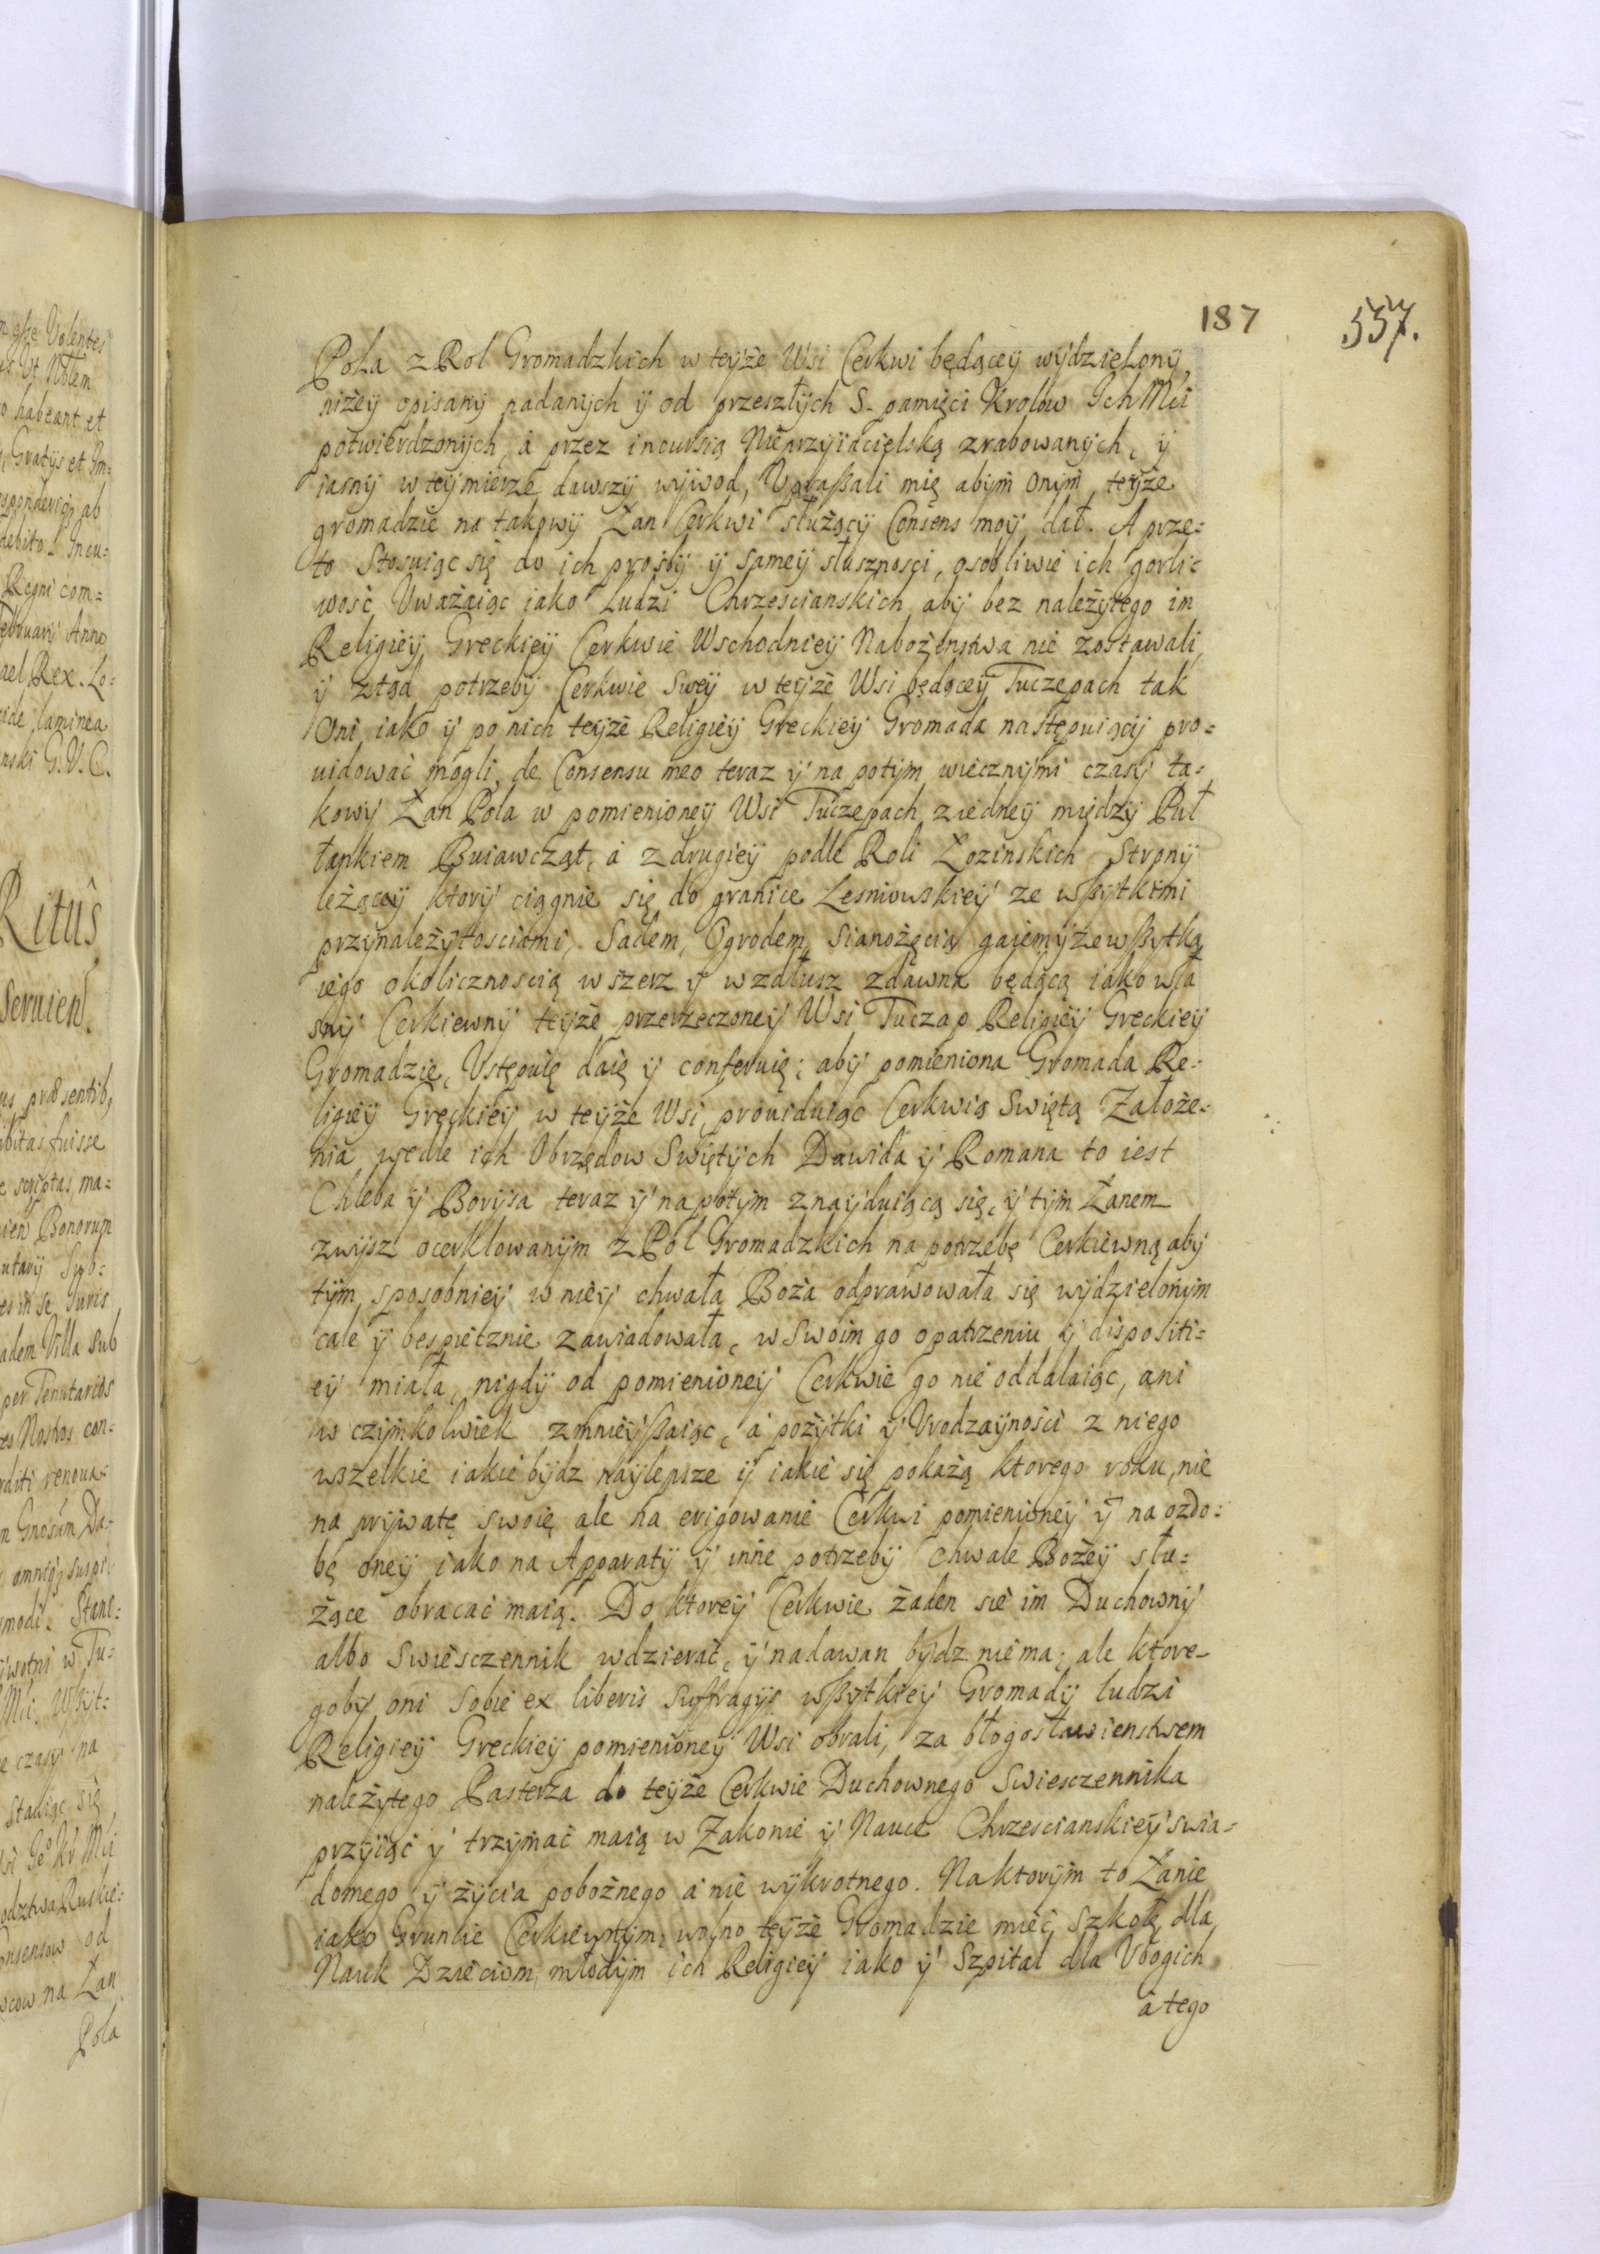 187
557.
Pola z Rol Gromadzkich w teyże Wsi Cerkwi będącey wydzielony,
niżey opisany nadanych y od przeszłych S. pamięci Krolow Ich Mci
potwierdzonych, á przez incursią Nieprzyiacielską zrabowanych, y
iasny w teymierze dawszy wywod, Vpraßali mię abym onym teyże
gromadzie na takowy Łan Cerkwi służący Consens moy dał. A prze=
to Stosuiąc się do ich prośby y samey słusznosci, osobliwie ich gorli=
wość Vważaiąc iako Ludzi Chrzescianskich, aby bez należytego im
Religiey Greckiey Cerkwie Wschodniey Nabożenstwa nie zostawali,
y ztąd potrzeby Cerkwie swey w teyże Wsi będącey Tuczepach tak
Oni iako y po nich teyże Religiey Greckiey Gromada następuiący pro=
uidować mogli, de Consensu meo teraz y na potym wiecznymi czasy ta=
kowy Łan Pola w pomienioney Wsi Tuczepach z iedney między Puł
łankiem Buiawcząt, á z drugiey podle Roli Łozinskich Strony
leżący ktory ciągnie się do granice Lesniowskiey ze wßytkimi
przynależytosciami, Sadem, Ogrodem, Sianożęcią gaiem y ze wßytką
iego okolicznoscią wszerz y wzdłusz zdawna będącą iako wła
sny Cerkiewny teyże przerzeczoney Wsi Tuczap Religiey Greckiey
Gromadzie, Vstępuię daię y conferuię; aby pomieniona Gromada Re=
ligiey Greckiey w teyże Wsi, prouiduiąc Cerkwią Swiętą Założe=
nia wedle ich Obrzędow Swiętych Dawida y Romana to iest
Chleba y Borysa teraz y na potym znayduiącą się, y tym Łanem
zwysz ocerklowanym z Pol Gromadzkich na potrzebę Cerkiewną aby
tym sposobniey w niey chwała Boża odprawowała się wydzielonym
cale y bespiecznie zawiadowała, w swoim go opatrzeniu y dispositi=
ey miała, nigdy od pomienioney Cerkwie go nie oddalaiąc, ani
w czymkolwiek zmnieyßaiąc, á pożytki y Vrodzayności z niego
wszelkie iakie bydz naylepsze y iakie się pokażą ktorego roku, nie
na prywatę swoię ale na erigowanie Cerkwi pomienioney y na ozdo=
bę oney iako na Apparaty y inne potrzeby chwale Bożey słu=
żące obracać maią. Do ktorey Cerkwie żaden sie im Duchowny
albo Swiesczennik wdzierać, y nadawan bydz nie ma; ale ktore=
goby oni sobie ex liberis suffragijs wßytkiey Gromady ludzi
Religiey Greckiey pomienioney Wsi obrali, za błogosławienstwem
należytego Pasterza do teyże Cerkwie Duchownego Swiesczennika
przyiąć y trzymać maią w Zakonie y Nauce Chrzescianskiey swia=
domego y życia pobożnego á nie wykrotnego. Na ktorym to Łanie
iako Gruncie Cerkiewnym, wolno teyże Gromadzie mieć Szkołę dla
Nauk Dzieciom młodym ich Religiey iako y Szpital dla Vbogich
á tego